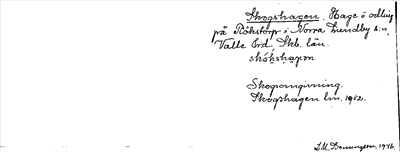 Skogshagen. Hage o odling
på Rökstorp i Norra Lundby sn,
Valle hd, Skb. län.
skókshagən
Skogomgivning.
Skogshagen lm. 1952.
1946.